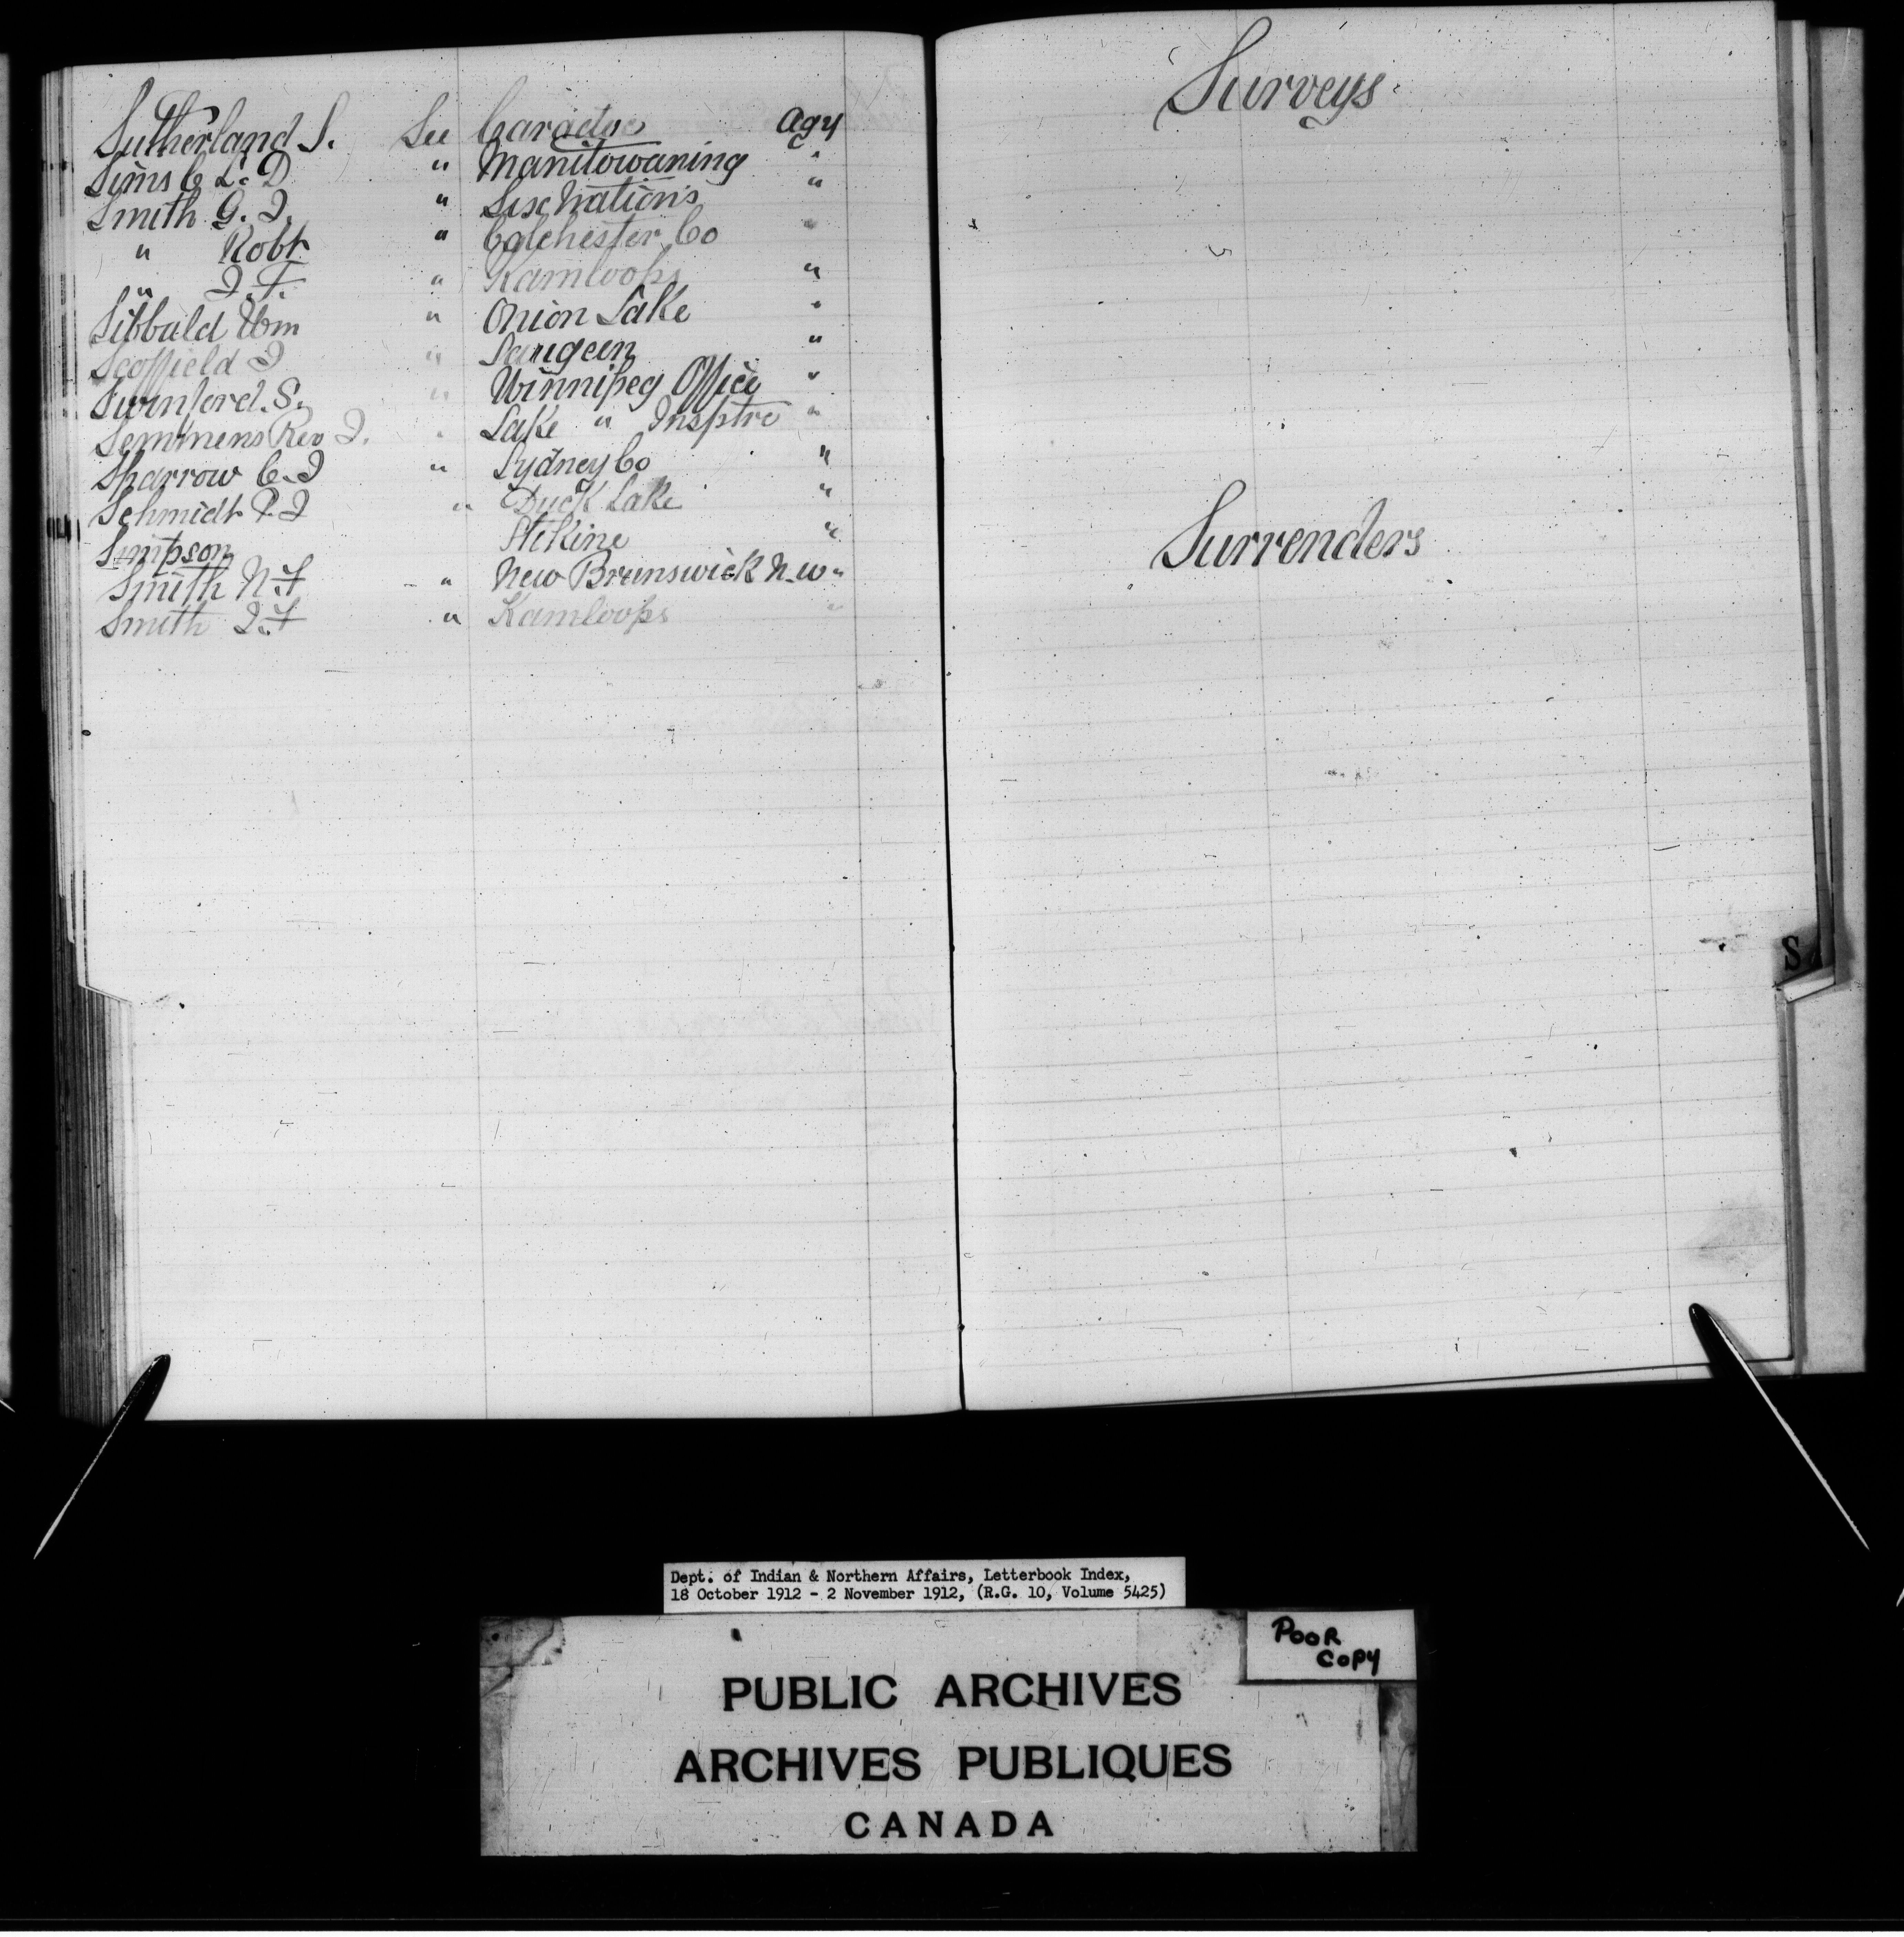 Sutherland S. See Caradoc Agy
Sims C L. D " Manitowaning "
Smith G. J. " Six Nations "
" Robt " Colchester Co "
" J. F. " Kamloops "
Sibbald Wm " Onion Lake "
Scoffield J " Saugeen "
Swinford. S. " Winnipeg Office "
Semmens Rev J. " Lake " Insptre "
Sparrow C. J " Sydney Co "
Schmidt P. J " Duck Lake "
Simpson Stikine "
Smith N. F " New Brunswick N.W "
Smith J. F " Kamloops "
Surveys
Surrenders
S
Dept. of Indian & Northern Affairs, Letterbook Index,
18 October 1912 - 2 November 1912, (R.G. 10, Volume 5425)
POOR
COPY
PUBLIC ARCHIVES
ARCHIVES PUBLIQUES
CANADA